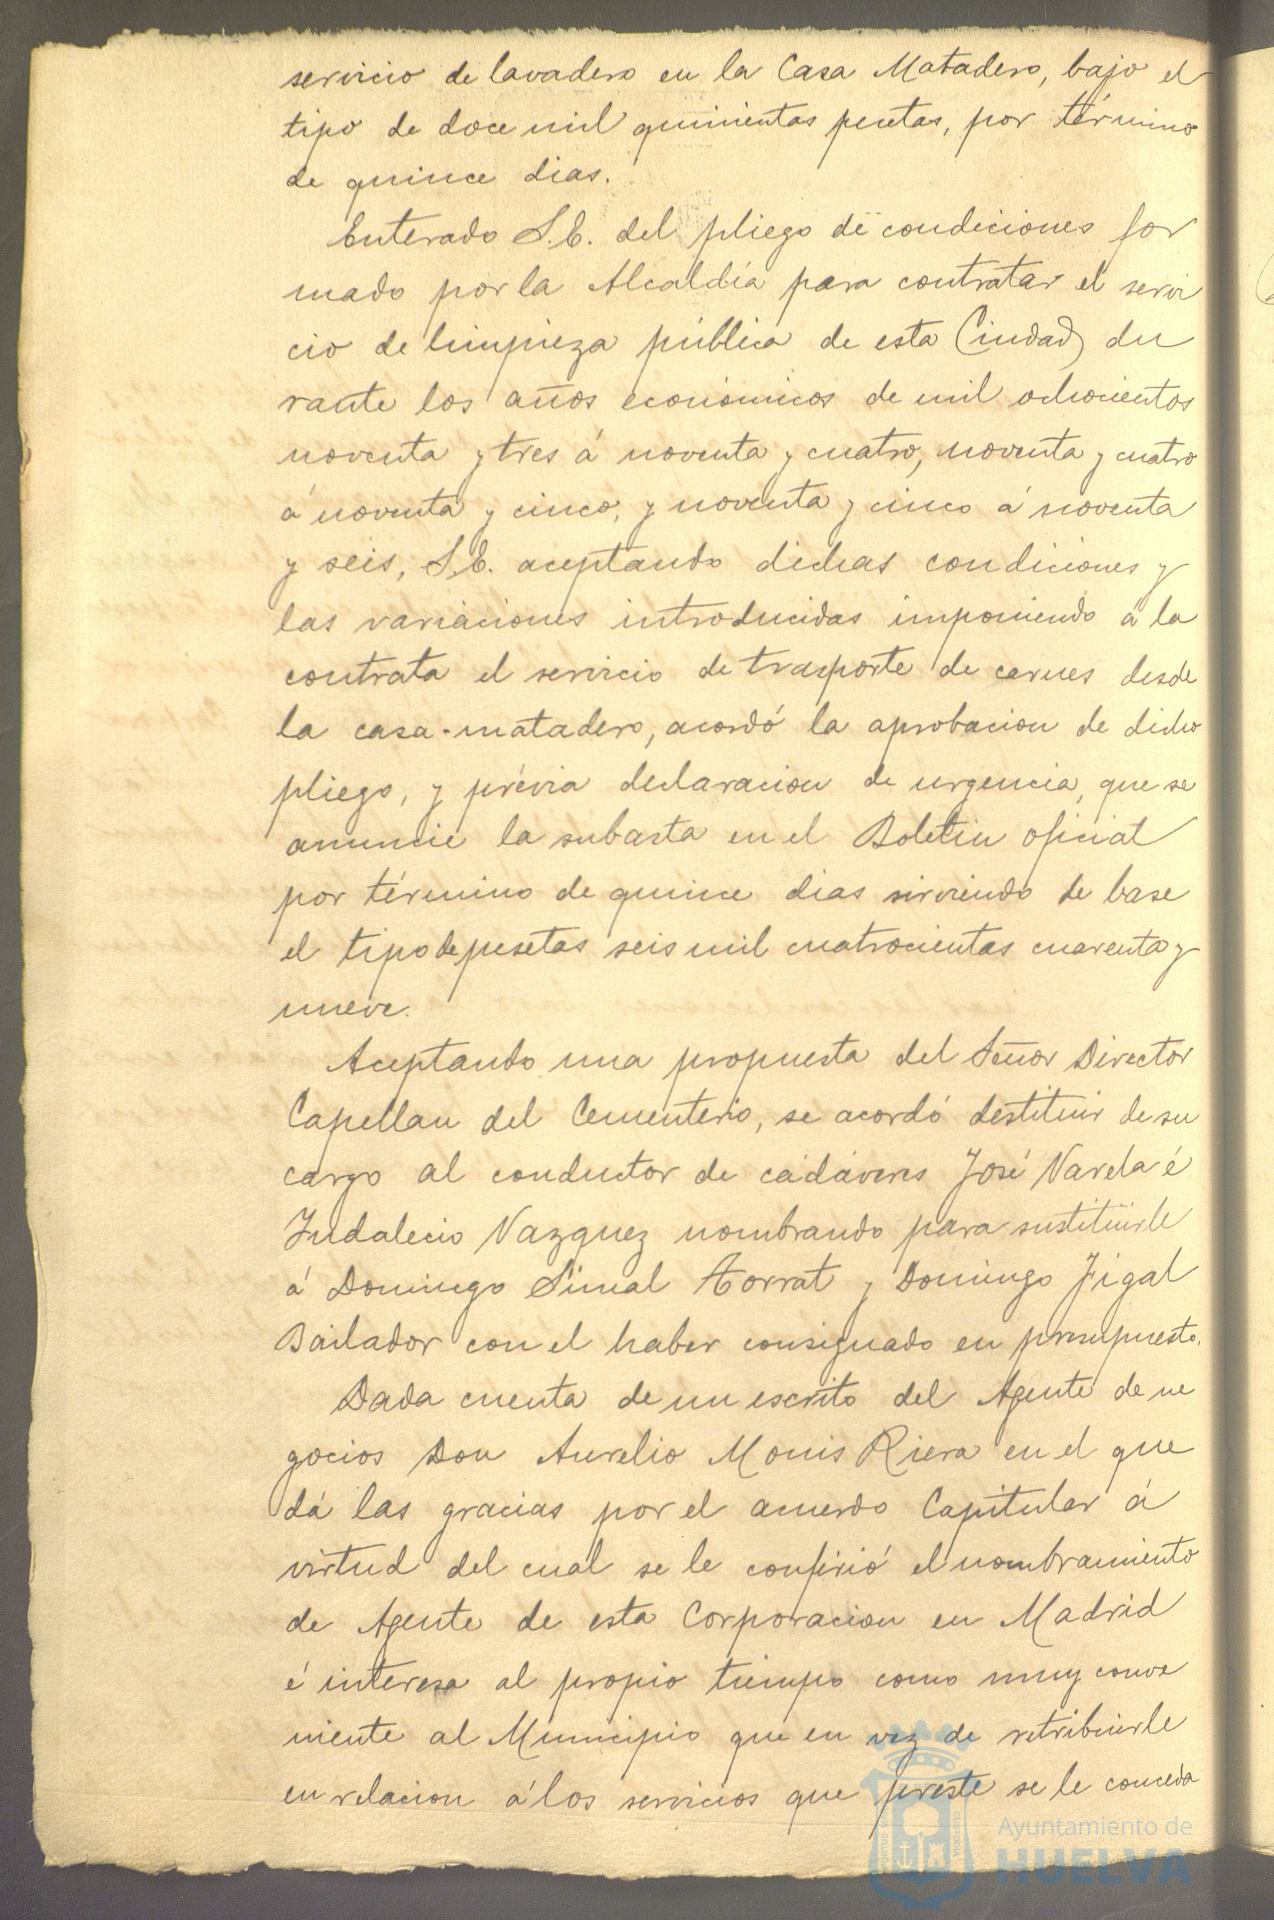 servicio de lavadero en la Casa Matadero, bajo el
tipo de doce mil quinientas pesetas, por término
de quince dias.
Enterado S.E. del pliego de condiciones for
mado por la Alcaldía para contratar el servi
cio de limpieza pública de esta Ciudad du
rante los años económicos de mil ochocientos
noventa y tres á noventa y cuatro, noventa y cuatro
á noventa y cinco, y noventa y cinco á noventa
y seis, S.E. aceptando dichas condiciones y
las variaciones introducidas imponiendo á la
contrata el servicio de trasporte de carnes desde
la casa-matadero, acordó la aprobacion de dicho
pliego, y prévia declaracion de urgencia, que se
anuncie la subasta en el Boletin oficial
por término de quince dias sirviendo de base
el tipo de pesetas seis mil cuatrocientas cuarenta y
nueve.
Aceptando una propuesta del Señor Director
Capellan del Cementerio, se acordó destituir de su
cargo al conductor de cadáveres José Varela é
Indalecio Vazquez nombrando para sustituirle
á Domingo Simal Torrat y Domingo Jigal
Bailador con el haber consignado en presupuesto.
Dada cuenta de un escrito del Agente de ne
gocios Don Aurelio Monis Riera en el que
dá las gracias por el acuerdo Capitular á
virtud del cual se le confirió el nombramiento
de Agente de esta Corporacion en Madrid
é interesa al propio tiempo como muy conve
niente al Municipio que en vez de retribuirle
en relacion á los servicios que preste se le conceda
Ayuntamiento de
HUELVA